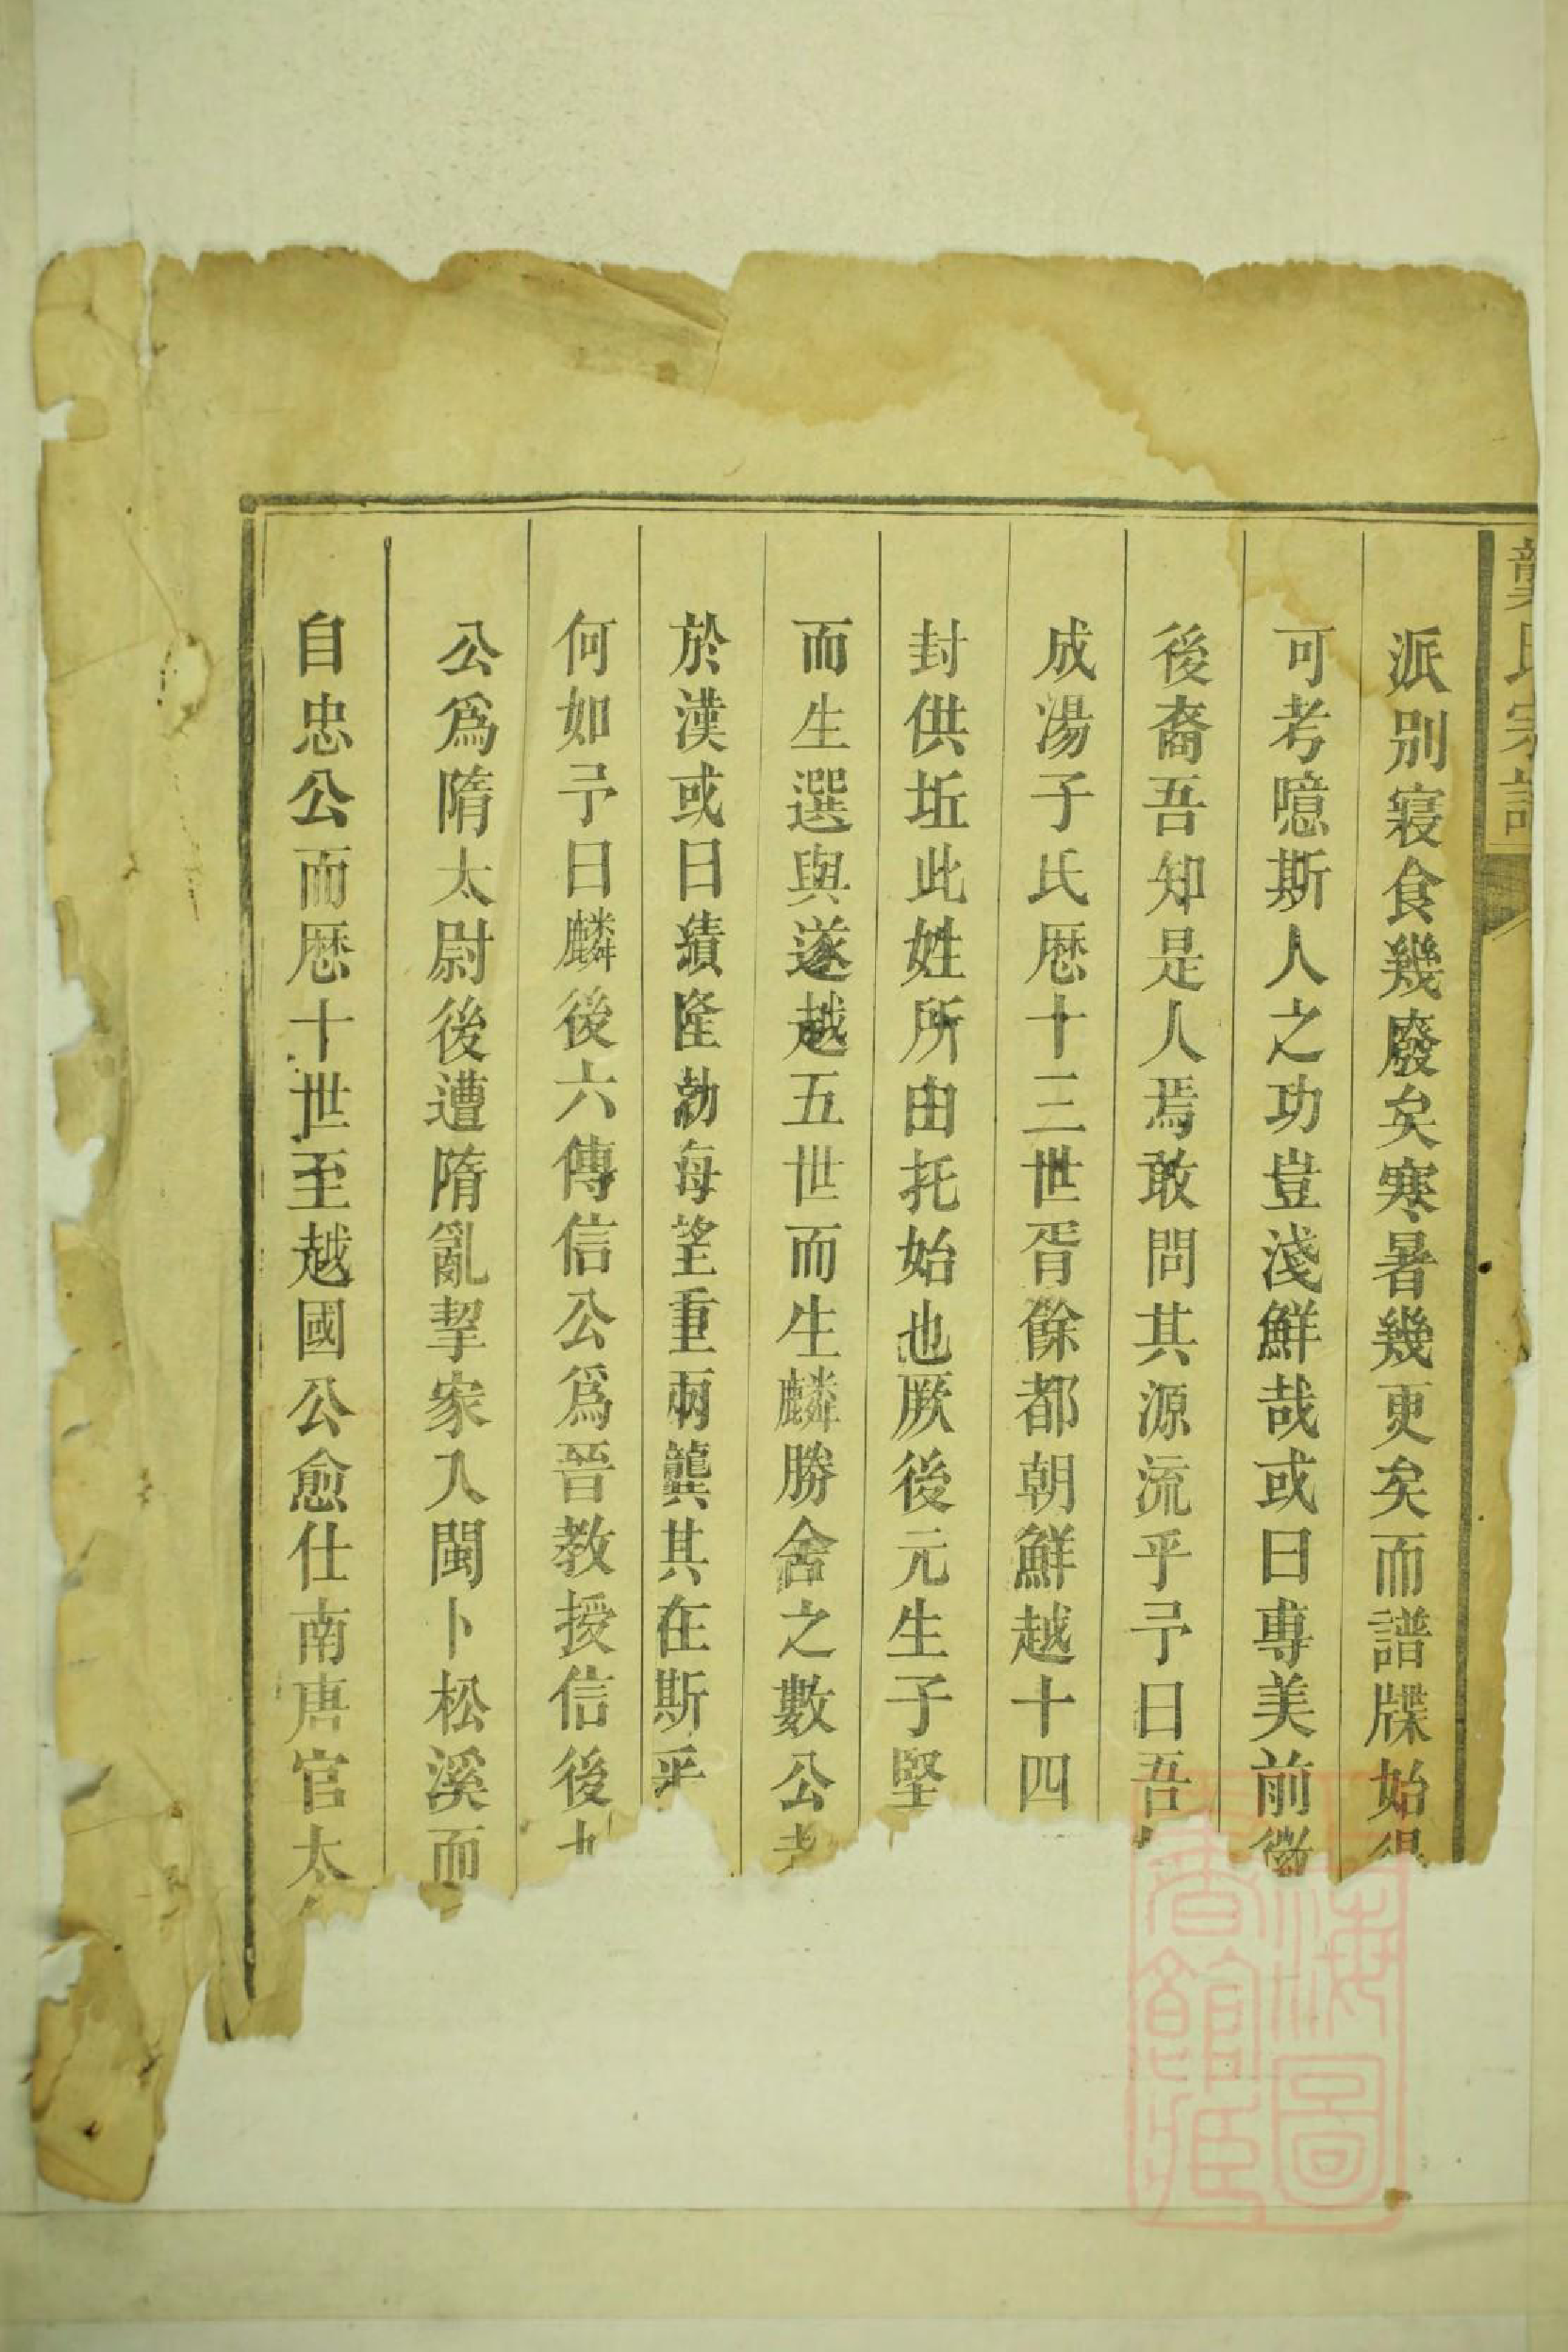 龔氏宗譜
派別寢食幾廢矣寒暑幾更矣而譜牒始得
可考噫斯人之功豈淺鮮哉或曰專美前徵
後裔吾知是人焉敢問其源流乎予曰吾
成湯子氏厯十三世胥餘都朝鮮越十四
封供坵此姓所由托始也厥後元生子堅
而生選與遂越五世而生麟勝舍之數公
於漢或曰績隆勃海望重兩龔其在斯乎
何如予曰麟後六傳信公爲晉教授信後九
公爲隋太尉後遭隋亂挈家入閩卜松溪而
自忠公而厯十世至越國公愈仕南唐官太
上海圖
書館藏